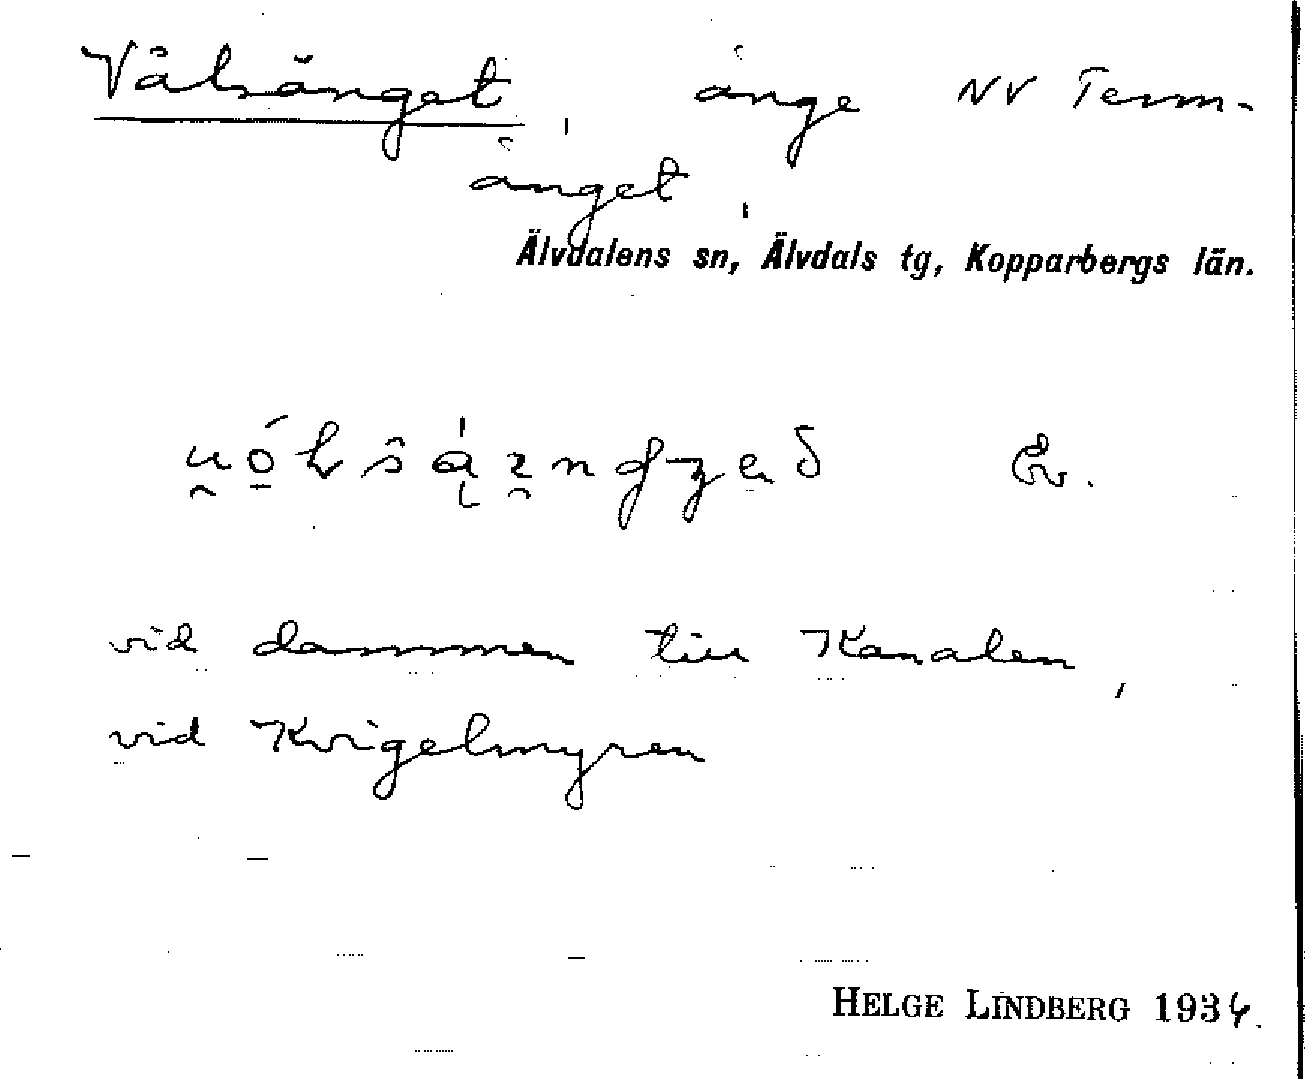 Vålsänget, änge NV Term-
änget,
Älvdalens sn, Älvdals tg, Kopparbergs län.
Ev.
vid dammen till Kanalen,
vid Kvigelmyren
HELGE LINDBERG 1934.